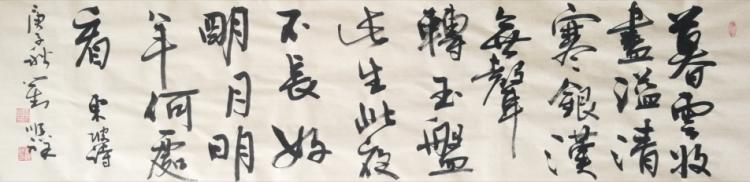 暮雲收
盡溢清
寒銀漢
無聲
轉玉盤
此生此夜
不長好
明月明
年何處
看 東坡詩
庚子秋 劉